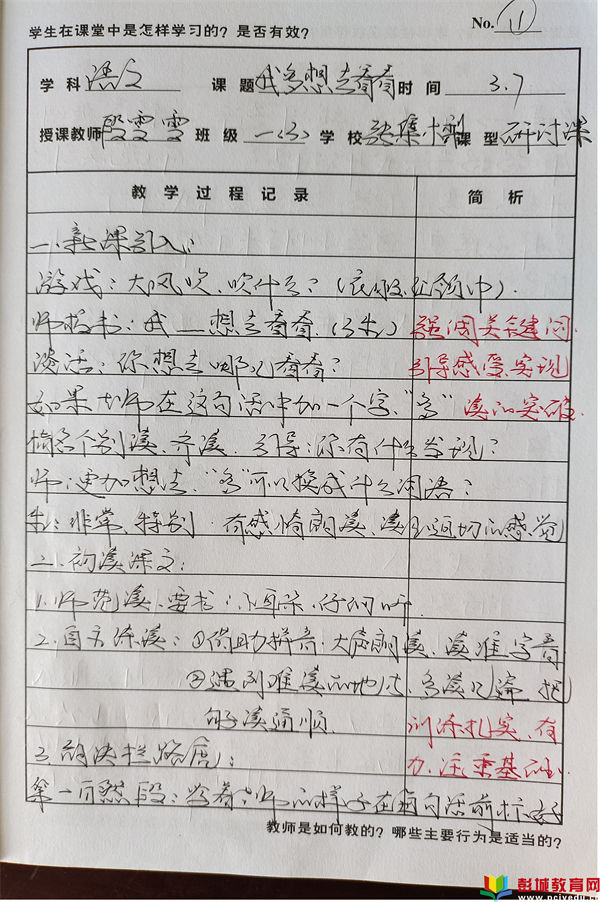 学生在课堂中是怎样学习的？是否有效？ No. 11
学科 语文 课题 我多想去看看 时间 3.7
授课教师 殷雪雪 班级 一(3) 学校 张集 课型 研讨课
教学过程记录 简析
一、新课引入：
游戏：大风吹，吹什么？
师板书：我__想去看看(3生) 强调关键词
谈话：你想去哪儿看看？ 引导感受，实现
如果老师在这句话中加一个字，“多” 读的突破.
指名个别读、齐读. 引导：你有什么发现？
师：更加想去，“多”可以换成什么词语？
生：非常、特别 有感情朗读，读出迫切的感觉
二、初读课文：
1. 师范读，要求：仔细听.
2. 自主练读：①借助拼音，大声朗读，读准字音
②遇到难读的地方，多读几遍，把
句子读通顺. 训练扎实、有
3. 解决拦路虎： 力，注重基础.
第一自然段：学着老师的样子在每句话前标好
教师是如何教的？哪些主要行为是适当的？
彭城教育网
www.pcjyedu.cn